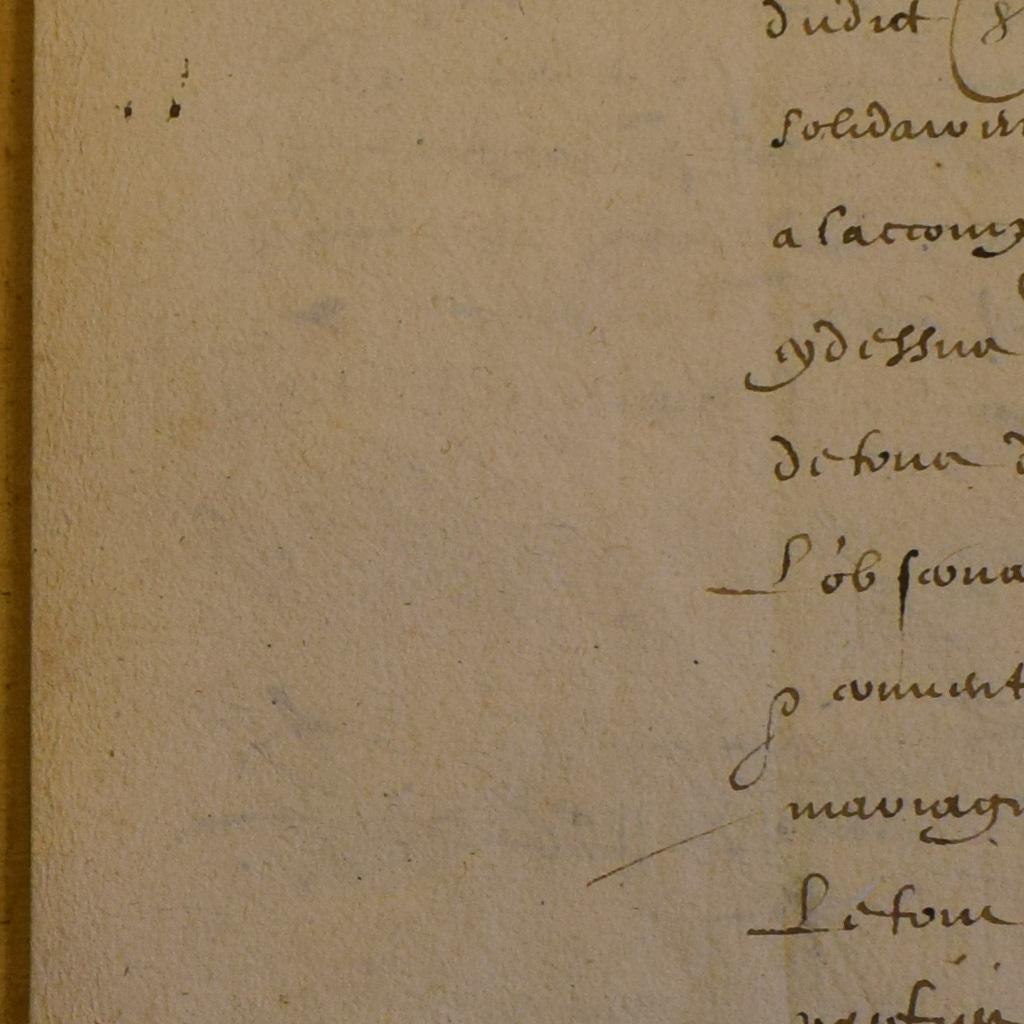 dudict
solidairem
a laccomp
cydessus
de tous d
L'obseua
conuent
mariage
Le tout